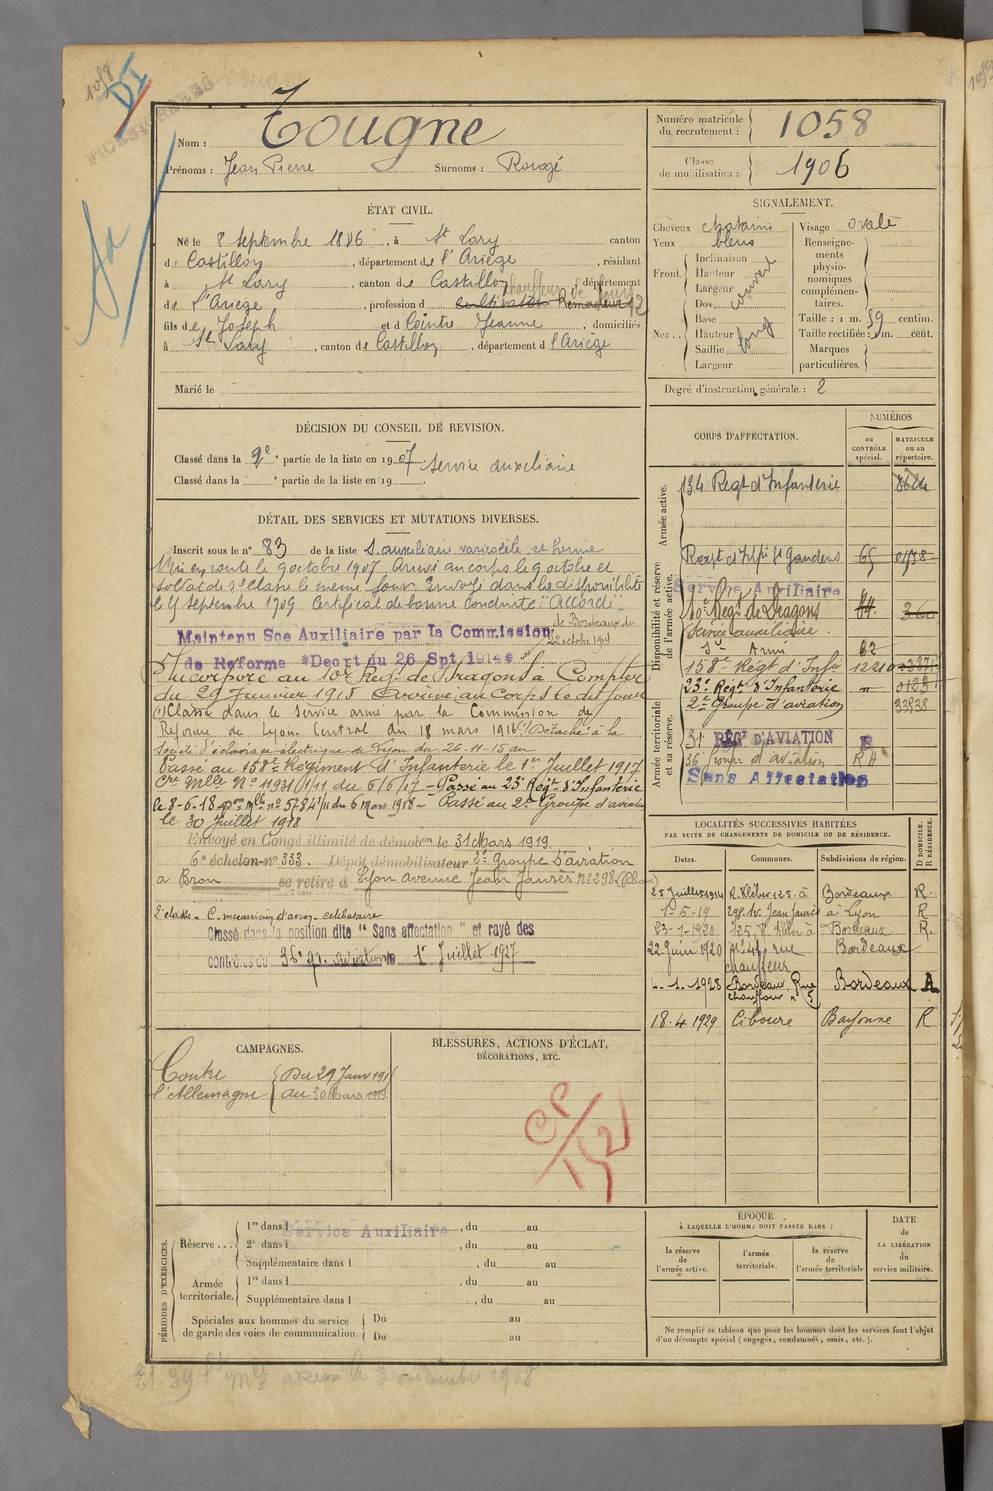 1058
DI
Nom : Tougne
Prénoms : Jean Pierre Surnoms : Rougé
Numéro matricule du recrutement : 1058
Classe de mobilisation : 1906
ÉTAT CIVIL.
Né le 8 septembre 1886, à St Lary canton
de Castillon, département de l'Ariège, résidant
à St Lary, canton de Castillon, département
de l'Ariège, profession d cultivateur Rémouleur chauffeur de four
fils de Joseph et d Cointre Jeanne, domiciliés
à St Lary, canton de Castillon, département d l'Ariège
Marié le
SIGNALEMENT.
Cheveux chatains Visage ovale
Yeux bleus
Front. Inclinaison Hauteur Largeur couvert
Nez.. Dos Base Hauteur Saillie Largeur long
Renseignements physionomiques complémentaires.
Taille : 1 m. 59 centim.
Taille rectifiée : 1 m. cent.
Marques particulières.
Degré d'instruction générale : 2
DÉCISION DU CONSEIL DE REVISION.
Classé dans la 2e partie de la liste en 1907 Service auxiliaire
Classé dans la e partie de la liste en 19
DÉTAIL DES SERVICES ET MUTATIONS DIVERSES.
Inscrit sous le n° 83 de la liste S. auxiliaire varicocèle et hernie
Mis en route le 9 octobre 1907. Arrivé au corps le 9 octobre et
soldat de 2e classe le même jour. Envoyé dans la disponibilité
le 25 septembre 1909. Certificat de bonne conduite "Accordé"
Maintenu Sce Auxiliaire par la Commission de Bordeaux du 22 octobre 1919
de Reforme *Decrt du 26 Spt. 1914*
Incorporé au 10e Régt de Dragons à Compter
du 29 Janvier 1915 Arrivé au Corps le dit jour
(1) Classé dans le service armé par la Commission de
Réforme de Lyon-Central du 18 mars 1916 (1) Détaché à la
Société d'éclairage électrique de Lyon du 26-11-15 au
Passé au 158e Régiment d'Infanterie le 1er Juillet 1917
Cre Mlle N° 11931 1/11 du 6/6/17 - Passé au 23e Régt d'Infanterie
le 8-6-18 mlle n° 5784 1/11 du 6 mars 1918 - Passé au 2e Groupe d'aviation
le 30 Juillet 1918
Envoyé en Congé illimité de démobon le 31 Mars 1919.
6e échelon-n° 333. Dépôt démobilisateur 2e Groupe D'aviation
a Bron se retire à Lyon Avenue Jean Jaurès N° 298 (Rhône)
2e classe - C. mecanicien d'avion - celibataire
Classé dans la position dite "Sans affectation" et rayé des
controles du 36e gr. aviation le 1er Juillet 1927
CORPS D'AFFECTATION.
NUMÉROS
au CONTRÔLE spécial.
MATRICULE ou au répertoire.
Armée active.
134 Regt d'Infanterie 8624
Disponibilité et réserve de l'armée active.
Regt d'Infie St Gaudens 65 01578
Service Auxiliaire
10e Régt de Dragons 44 36
Service auxiliaire
158e Regt d'Infie
23e Regt d'Infanterie " 0123
2e Groupe d'aviation 33538
Armée territoriale et sa réserve.
31 RÉGt D'AVIATION B
36 Groupe d'aviation
Sans Affectation
LOCALITÉS SUCCESSIVES HABITÉES
PAR SUITE DE CHANGEMENTS DE DOMICILE OU DE RÉSIDENCE.
Dates. Communes. Subdivisions de région. D DOMICILE. R RÉSIDENCE.
25 Juillet 1914 R. Kléber 125. à Bordeaux R.
1-5-19 298 Av. Jean Jaurès à Lyon R
23-1-1920 125 R Kléber à Bordeaux R.
22 Juin 1920 n° 45 rue chauffeur Bordeaux
1. 1928 Bordeaux, Rue chauffour n° 5 Bordeaux A
18.4 1929 Ciboure Bayonne R
CAMPAGNES.
Contre l'Allemagne
Du 29 Janv 1915
au 30 Mars 1919
BLESSURES, ACTIONS D'ÉCLAT,
DÉCORATIONS, ETC.
PÉRIODES D'EXERCICES.
Réserve...
1re dans l , du au
Service Auxiliaire
2e dans l , du au
Supplémentaire dans l , du au
Armée territoriale.
1re dans l , du au
Supplémentaire dans l , du au
Spéciales aux hommes du service de garde des voies de communication.
Du au
Du au
ÉPOQUE
À LAQUELLE L'HOMME DOIT PASSER DANS :
la réserve de l'armée active.
l'armée territoriale.
la réserve de l'armée territoriale
DATE de LA LIBÉRATION du service militaire.
Ne remplir ce tableau que pour les hommes dont les services font l'objet
d'un décompte spécial (engagés, condamnés, omis, etc.).